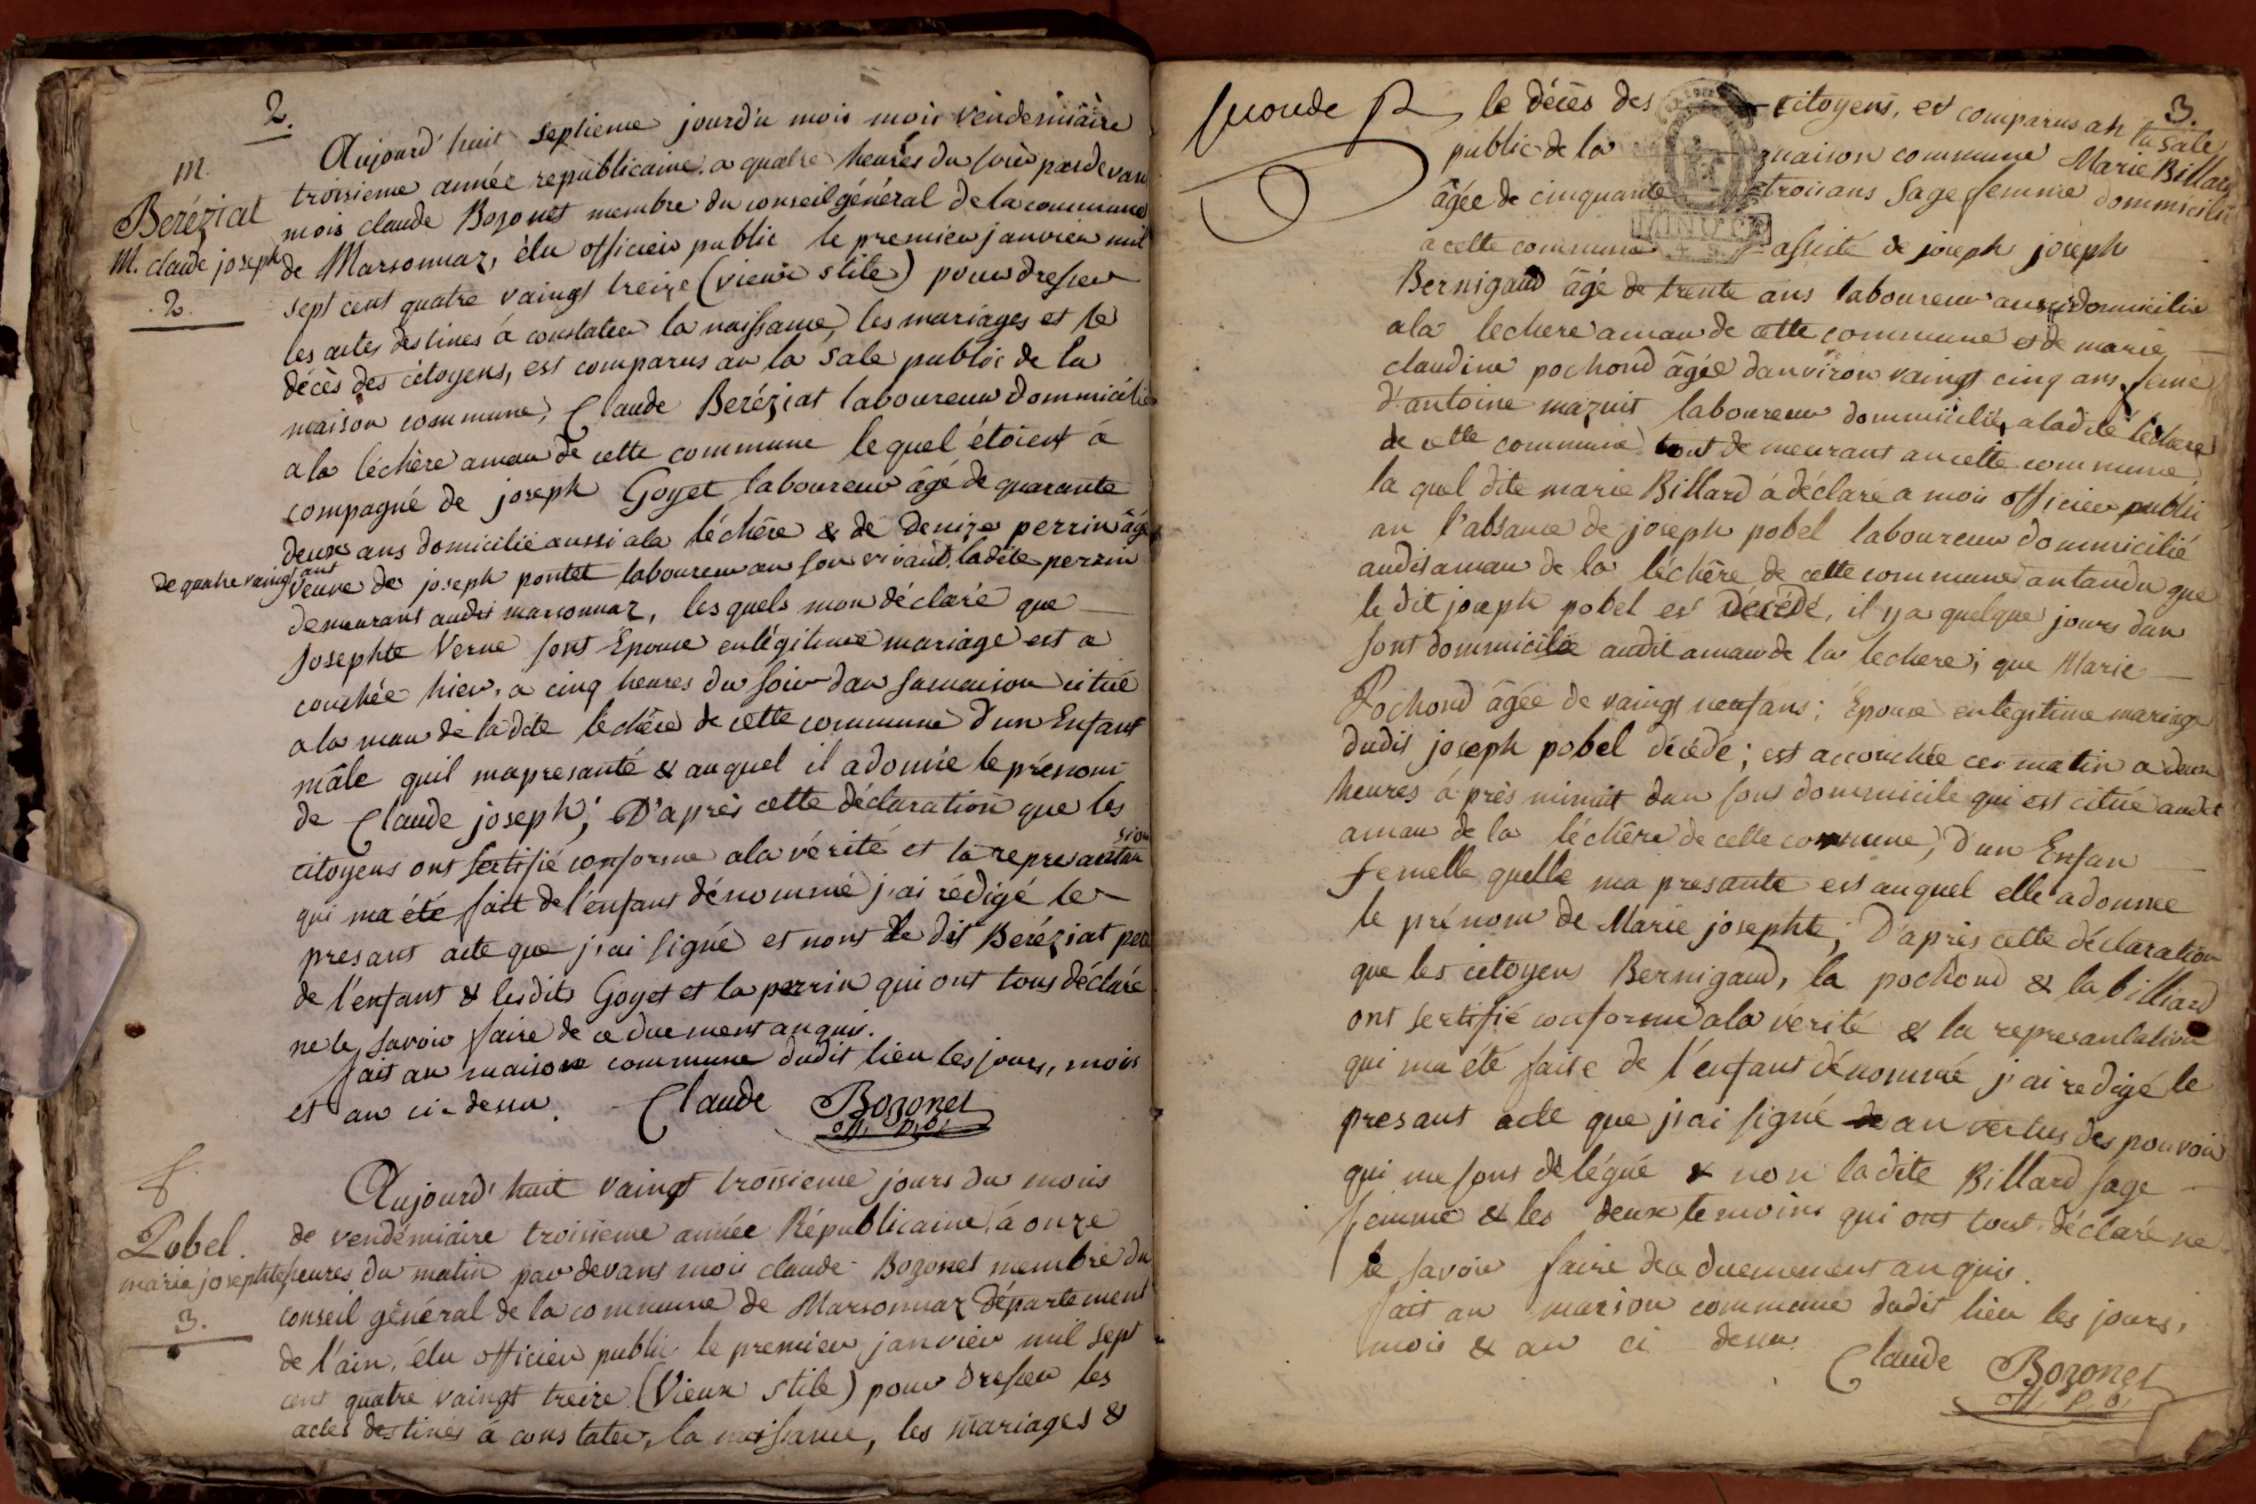 2.
Aujourd'huit septieme jourdu mois mois vendemiaire
troisieme année republicaine a quatre heures du soir pardevan
mois claude Bozonet membre du conseil général de la commune
de Marsonnaz, élu officier public le premier janvier mil
sept cent quatre vaingt treize (vieux stile) pour dresser
les actes destines á constater la naissance, les mariages et le
décès des citoyens, est comparus an la sale public de la
maison commune, Claude Beréziat laboureur dommicilié
a la léchère amau de cette commune le quel étoient á
compagné de joseph Goyet laboureur âgé de quarante
deux ans domicilié aussi ala léchère & de denize perrin âgé
de quatre vaingt ans
veuve de joseph pontet laboureur an son vivant, ladite perrin
demeurant audit marsonnaz, lesquels mon déclaré que
Josephte Verne sont Epouse en légitime mariage est a
couchée hier, a cinq heures du soir dan sa maison citué
a la mau de la dite léchère de cette commune d'un Enfant
mâle quil mapresanté & auquel il a donné le prénom
de Claude joseph; D'après cette déclaration que les
citoyens ont sertifié conforme ala vérité et la represantation
qui ma été fait de l'enfant dénommé j'ai rédigé le
presant acte que j'ai signé et nont le dit Beréziat per
de l'enfant & lesdits Goyet et la perrin qui ont tous déclaré
ne le savoir faire de ce duement anquis.
fait an maison commune dudit lieu les jours, mois
et an ci-dessu. Claude Bozonet
off. p.b.
m.
Beréziat
M. claude joseph
.2.
f.
Pobel.
marie josephte
3.
Aujourd'huit vaingt troisieme jours du mois
de vendémiaire troisieme année Républicaine, á onze
heures du matin par devant mois claude Bozonet membre du
conseil général de la commune de Marsonnaz Département
de l'ain, élu officier public le premier janvier mil sept
cent quatre vaingt treize (Vieux stile) pour dresser les
actes destinés á constater, la naissance, les mariages &
3.
le décès des citoyens, est comparus an la sale
public de la maison commune Marie Billard
âgée de cinquante trois ans sage femme dommicilié
a cette commune assisté de joseph joseph
Bernigaud âgé de trente ans laboureur aussi domicilie
ala lechere amau de cette commune et de marie
claudine pochond âgée danviron vaingt cinq ans feme
d'antoine mazuit laboureur dommicilié, a ladite léchere
de cette commune tout de meurant an cette commune,
la quel dite marie Billard á déclaré a mois officier publi
an l'absance de joseph pobel laboureur dommicilié
audit amau de la léchère de cette commune antandu que
le dit joseph pobel est Décédé, il y a quelque jours dan
sont dommicilie audit amau de la lechere; que Marie
Pochond âgée de vaingt neuf ans; Epouse en legitime mariage
dudit joseph pobel décédé; est accouchée ce matin a deux
heures á près minuit dan sons dommicile qui est citué audit
amau de la léchère de cette commune, d'un Enfan
femelle quelle ma presante est auquel elle a donnée
le prénom de Marie josephte; D'après cette déclaration
que les citoyens Bernigaud, la pochond & la billiard
ont sertifié conforme ala vérité & la represantation
qui ma été faite de l'enfant dénommé j'ai redigé le
presant acte que j'ai signé an vertus des pouvoir
qui me sont délégué & non ladite Billard sage
femme & les deux temoins qui ont tout déclaré ne
le savoir faire de ce duemement anquis.
fait an maison commune dudit lieu les jours,
mois & an ci dessu.
Claude Bozonet
off. p.b.